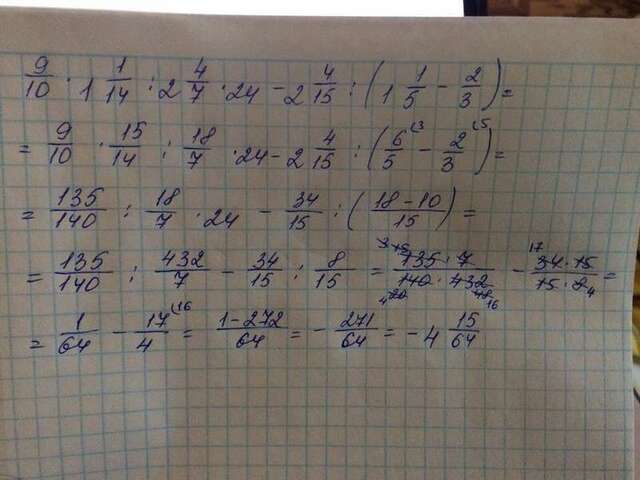 9/10 · 1 1/14 : 2 4/7 · 24 - 2 4/15 : (1 1/5 - 2/3) =
= 9/10 · 15/14 : 18/7 · 24 - 2 4/15 : (6/5 (3 - 2/3 (5) =
= 135/140 : 18/7 · 24 - 34/15 : (18-10/15) =
= 135/140 : 432/7 - 34/15 : 8/15 = 135·7/140·432 - 34·15/15·8 =
= 1/64 - 17/4 (16 = 1-272/64 = - 271/64 = -4 15/64